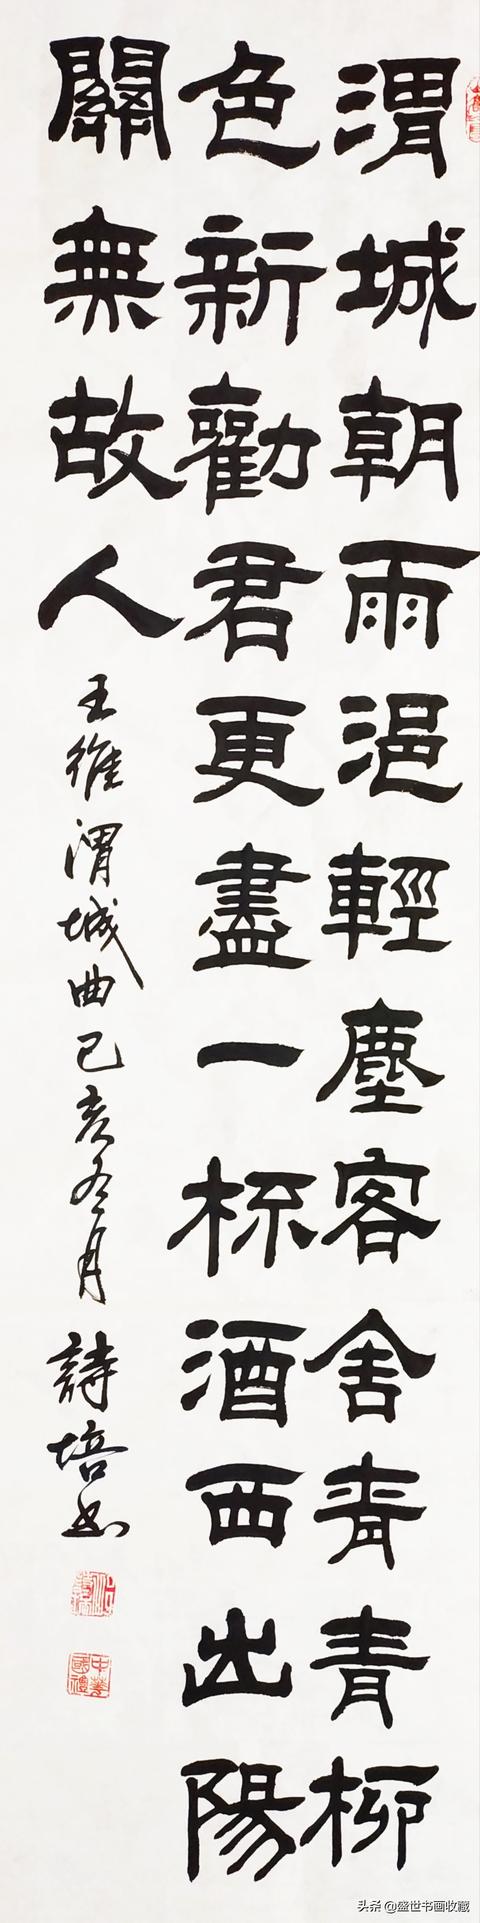 渭城朝雨浥輕塵客舍青青柳
色新勸君更盡一杯酒西出陽
關無故人
王維渭城曲己亥冬月詩培書
中華國禮
头条 @盛世书画收藏